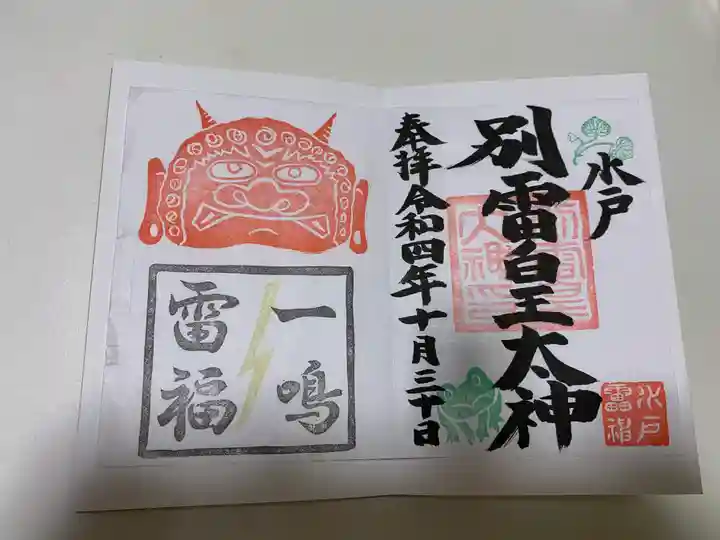 水戸
別雷皇太神
奉拝令和四年十月三十日
水戸
雷神
一鳴
雷福